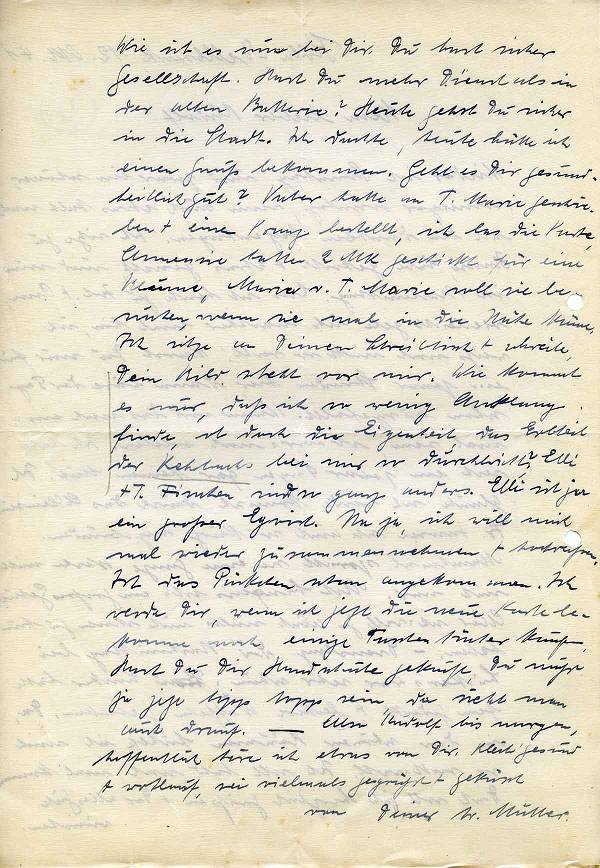 Wie ist es nun bei Dir. Du hast sicher
Gesellschaft. Hast Du mehr Dienst als in
der alten Batterie? Heute gehst Du sicher
in die Stadt. Ich dachte, heute hätte ich
einen Gruß bekommen. Geht es Dir gesund-
heitlich gut? Vater hatte an T. Marie geschrie-
ben + einen Kranz bestellt, ich las die Karte,
hatten 2 Mk geschickt für eine
Maria v. T. Marie soll sie be-
nutzen, wenn sie mal in die Nähe käme.
Ich sitze an Deinem Schreibtisch + schreibe,
Dein Bild steht vor mir. Wie kommt
es nur, daß ich so wenig Anklang
finde, ob doch die Eigenheit, das Erbteil
der bei mir so durchbricht? Elli
+ T. Finchen sind so ganz anders. Elli ist ja
ein großer Egoist. Na ja, ich will mich
mal wieder zusammennehmen +
Ist das Päckchen schon angekommen. Ich
werde Dir, wenn ich jetzt die neue Karte be-
komme noch einige kaufen.
Hast Du Dir Handschuhe gekauft, Du mußt
ja jetzt tipp topp sein da sieht man
auch drauf. — Also Rudolf bis morgen,
hoffentlich höre ich etwas von Dir. Bleib gesund
+ wohlauf, sei vielmals gegrüßt + geküsst
von Deiner tr. Mutter.